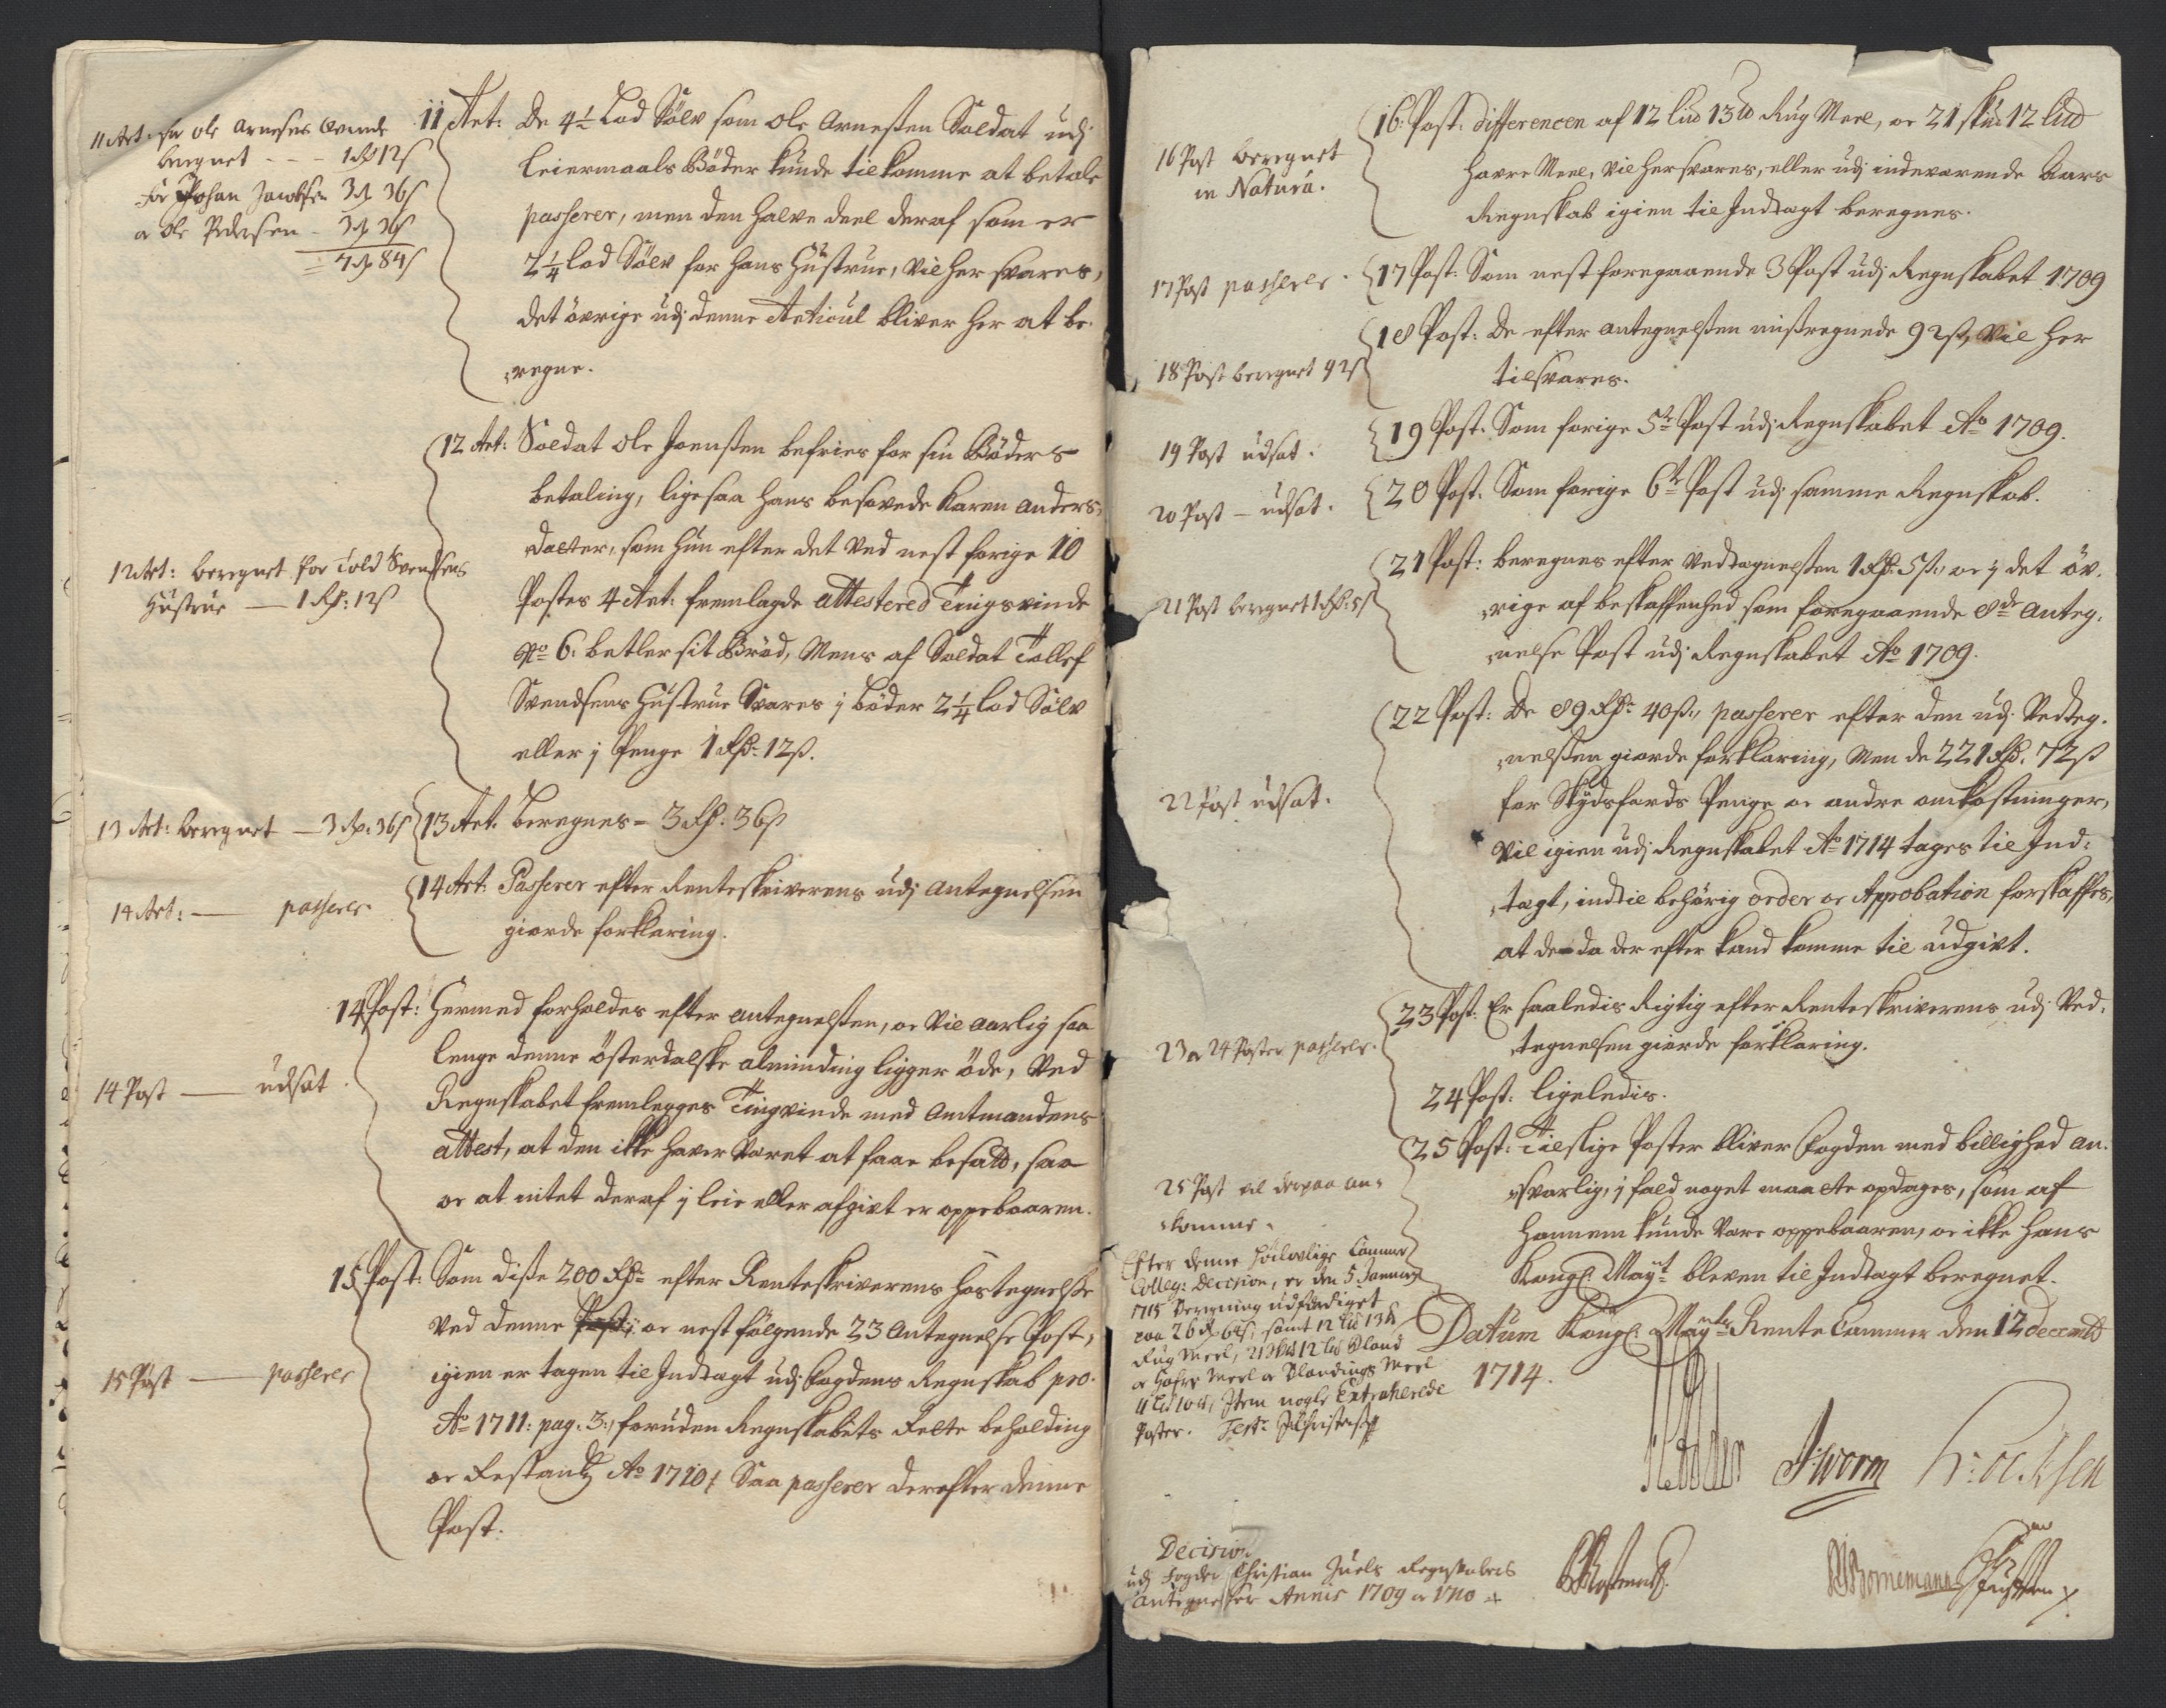 11 Art: for Ole Arnesens Qvinde
beregnet - - - 1 Rd 12 s
for Johan Jacobsen 3 Rd 36 s
a Ole Pedersen - 3 Rd 36 s
7 Rd 84 s
11 Art: De 4½ Lod Sölv som Ole Arneßen Soldat udj
Leiermaals Böder kunde tilkomme at betale
passerer, men den halve deel deraf som er
2¼ Lod Sölv for hans Hustrue, vil her svares,
det övrige udj denne Articul bliver her at be-
regne.
12 Art: Soldat Ole Joenßen befries for sin Böders
betaling, ligesaa hans besovede Karen Anders-
datter, som hun efter det ved nest forige 10
Postes 4 Art: fremlagde attestered Tingsvinde
No 6: betler sit Bröd, Mens af Soldat Tollef
Svendsens Hustrue Svares j böder 2¼ Lod Sölv
eller j Penge 1 Rd: 12 ß.
12 Art: beregnet for Told Svendsens
Hustrue — 1 Rd: 12 s
13 Art: beregnet — 3 Rd: 36 s
13 Art: Beregnes = 3 Rd: 36 ß
14 Art: — passerer
14 Art: Passerer efter Renteskriverens udj Antegnelsen
giorde forklaring.
14 Post — udsat.
14 Post: Hermed forholdes efter antegnelßen, oc vil aarlig saa
lenge denne Österdalske alminding ligger öde, ved
Regnskabet fremlegges Tingsvinde med Amtmandens
attest, at den ikke haver været at faae besatt, saa
oc at intet deraf j leie eller afgivt er oppebaaren.
15 Post — passerer
15 Post: Som diße 200 Rdr efter Renteskriverens Hostegnelße
ved denne Post; oc nest fölgende 23 Antegnelse Post,
igien er tagen til Indtagt udj Fogdens Regnskab pro
Ao 1711: pag: 3:, foruden Regnskabets Felte beholding
oc Restantz Ao 1710; Saa passerer derefter denne
Post.
16 Post beregnet
in Natura.
16 Post: differencen af 12 Lid 13 lb Rug Meel, oc 21 skud 12 Lud
Havre Meel, vil her svares, eller udj indeværende Aars
Regnskab igien til Indtagt beregnes.
17 Post passerer.
17 Post: Som nest foregaaende 3 Post udj Regnskabet 1709
18 Post beregnet 92 s
18 Post: De efter antegnelßen mißregnede 92 ß, vil her
tilsvares.
19 Post udsat.
19 Post: Som forige 5te Post udj Regnskabet Ao 1709.
20 Post - udsat.
20 Post: Som forige 6te Post udj samme Regnskab.
21 Post beregnet 1 Rd: 5 s
21 Post: beregnes efter Vedtegnelßen 1 Rd: 5 ß., oc j det öv-
rige af beskaffenhed som foregaaende 8de Anteg-
nelse Post udj Regnskabet Ao 1709.
22 Post udsat.
22 Post: De 89 Rdr 40 ß:, passerer efter den udj Vedteg-
nelßen giorde forklaring, Men de 221 Rd: 72 ß
for Skydsferds Penge oc andre omkostninger,
vil igien udj Regnskabet Ao 1714 tages til Ind-
tagt, indtil behörig order oc Approbation forskaffes,
at de da der efter kand komme til udgivt.
23 a 24 Poster passerer.
23 Post: Er saaledis Rigtig efter Renteskriverens udj Ved-
tegnelsen giorde forklaring.
24 Post: ligeledis.
25 Post vil derpaa an-
komme.
25 Post: Tilslige Poster bliver Fogden med billighed an-
svarlig, j fald noget maatte opdages, som af
hannem kunde være oppebaaren, oc ikke Hans
Kongl: Mayt bleven til Indtagt beregnet.
Efter denne Höilovlige Cammer
Colleg: Decision, er den 5 Januarij
1715 Beregning udferdiget
paa 26 Rd 61 s; samt 12 Lid 13 lb
Rug Meel, 21 skud 12 Lid Bland
oc Hafre Meel a Blandings Meel
Item nogle Extraherede
Poster.
Datum Kongl: Mayts Rente Cammer den 12 decembr
1714.
J Worm
Bornemann
Decision
udj Foged Christian Juels Regnskabers
Antegnelser Annis 1709 a 1710